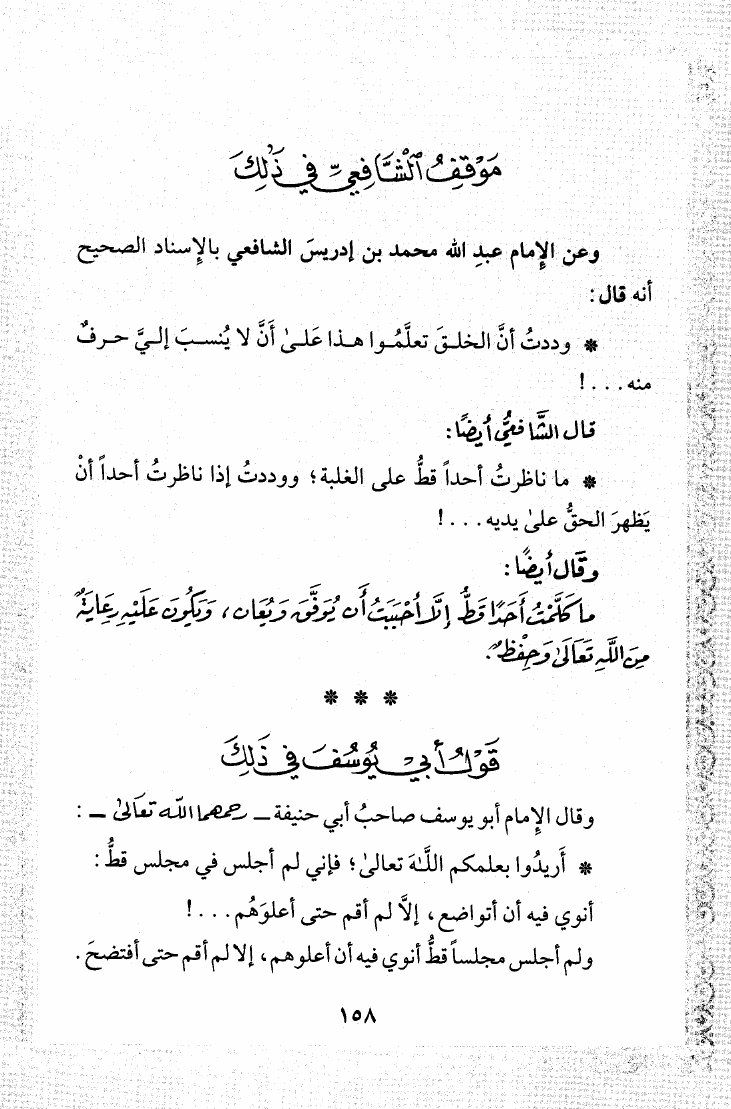 مَوْقِفُ ٱلشَّافِعِيِّ فِي ذَٰلِكَ
وعن الإمام عبدِ الله محمد بن إدريسَ الشافعي بالإسناد الصحيح
أنه قال:
* وددتُ أنَّ الخلـقَ تعلَّمُـوا هـذا عَلـىٰ أَنَّ لا يُنسـبَ إلـيَّ حـرفٌ
منه...!
قال الشَّافعيُّ أيضًا:
* ما ناظرتُ أحداً قطُّ على الغلبة؛ ووددتُ إذا ناظرتُ أحداً أنْ
يَظهرَ الحقُّ علىٰ يديه...!
وقَال أيضًا:
ما كلَّمْتُ أَحَدًا قَطُّ إلَّا أَحْبَبْتُ أَن يُوَفَّقَ وَيُعَان، وَيَكُونَ عَلَيْهِ رِعَايَةٌ
مِنَ اللَّهِ تَعَالَىٰ وَحِفْظٌ.
* * *
قَوْلُ أَبِي يُوسُفَ فِي ذَلِكَ
وقال الإمام أبو يوسف صاحبُ أبي حنيفة ـ رحمهما الله تعالىٰ ـ :
* أَريدُوا بعلمكم اللَّـهَ تعالىٰ؛ فإني لم أجلس في مجلس قطُّ:
أنوي فيه أن أتواضع، إلاَّ لم أقم حتى أعلوَهُم...!
ولم أجلس مجلساً قطُّ أنوي فيه أن أعلوهم، إلا لم أقم حتى أفتضحَ.
١٥٨